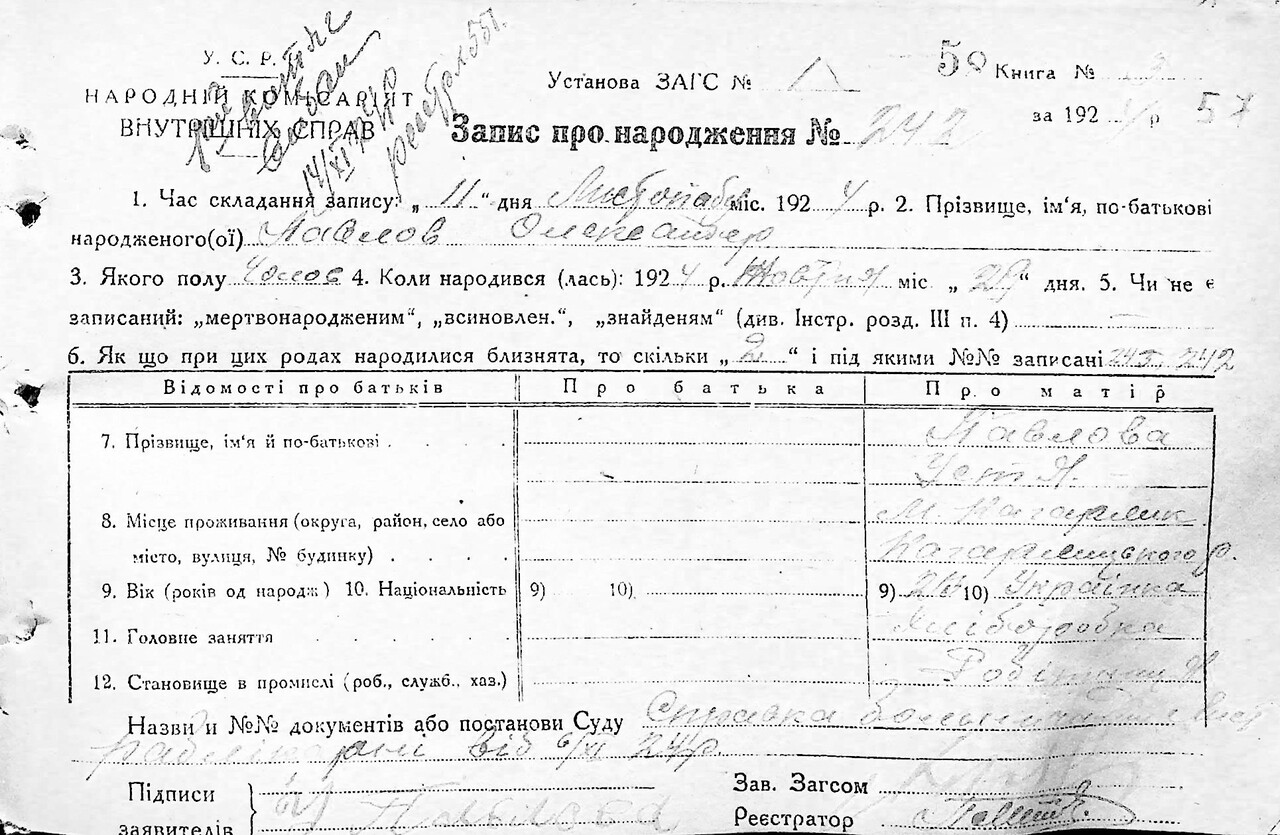 У. С. Р.
НАРОДНІЙ КОМІСАРІЯТ
ВНУТРІШНІХ СПРАВ
14/XI
Установа ЗАГС № 1
50 Книга № 3
за 192 4 р 57
Запис про народження № 242
1. Час складання запису: „ 11 “ дня Листопаду міс. 192 4 р. 2. Прізвище, ім'я, по-батькові
народженого(ої) Павлов Олександер
3. Якого полу Чолов 4. Коли народився (лась): 192 4 р. Жовтня міс „ 29 “ дня. 5. Чи не є
записаний: „мертвонародженим“, „всиновлен.“, „знайденям“ (див. Інстр. розд. III п. 4)
6. Як що при цих родах народилися близнята, то скільки „ 2 “ і під якими №№ записані 242
Відомості про батьків Про батька Про матір
7. Прізвище, ім'я й по-батькові Павлова
Устя
8. Місце проживання (округа, район, село або м. Кагарлик
місто, вулиця, № будинку) Кагарлицького р.
9. Вік (років од народж) 10. Національність 9) 10) 9) 10) Українка
11. Головне заняття
12. Становище в промислі (роб., служб., хаз.) Робітниця
Назви и №№ документів або постанови Суду Справка
від 6/XI 24 р.
Підписи Зав. Загсом
заявителів У Павлова Реєстратор